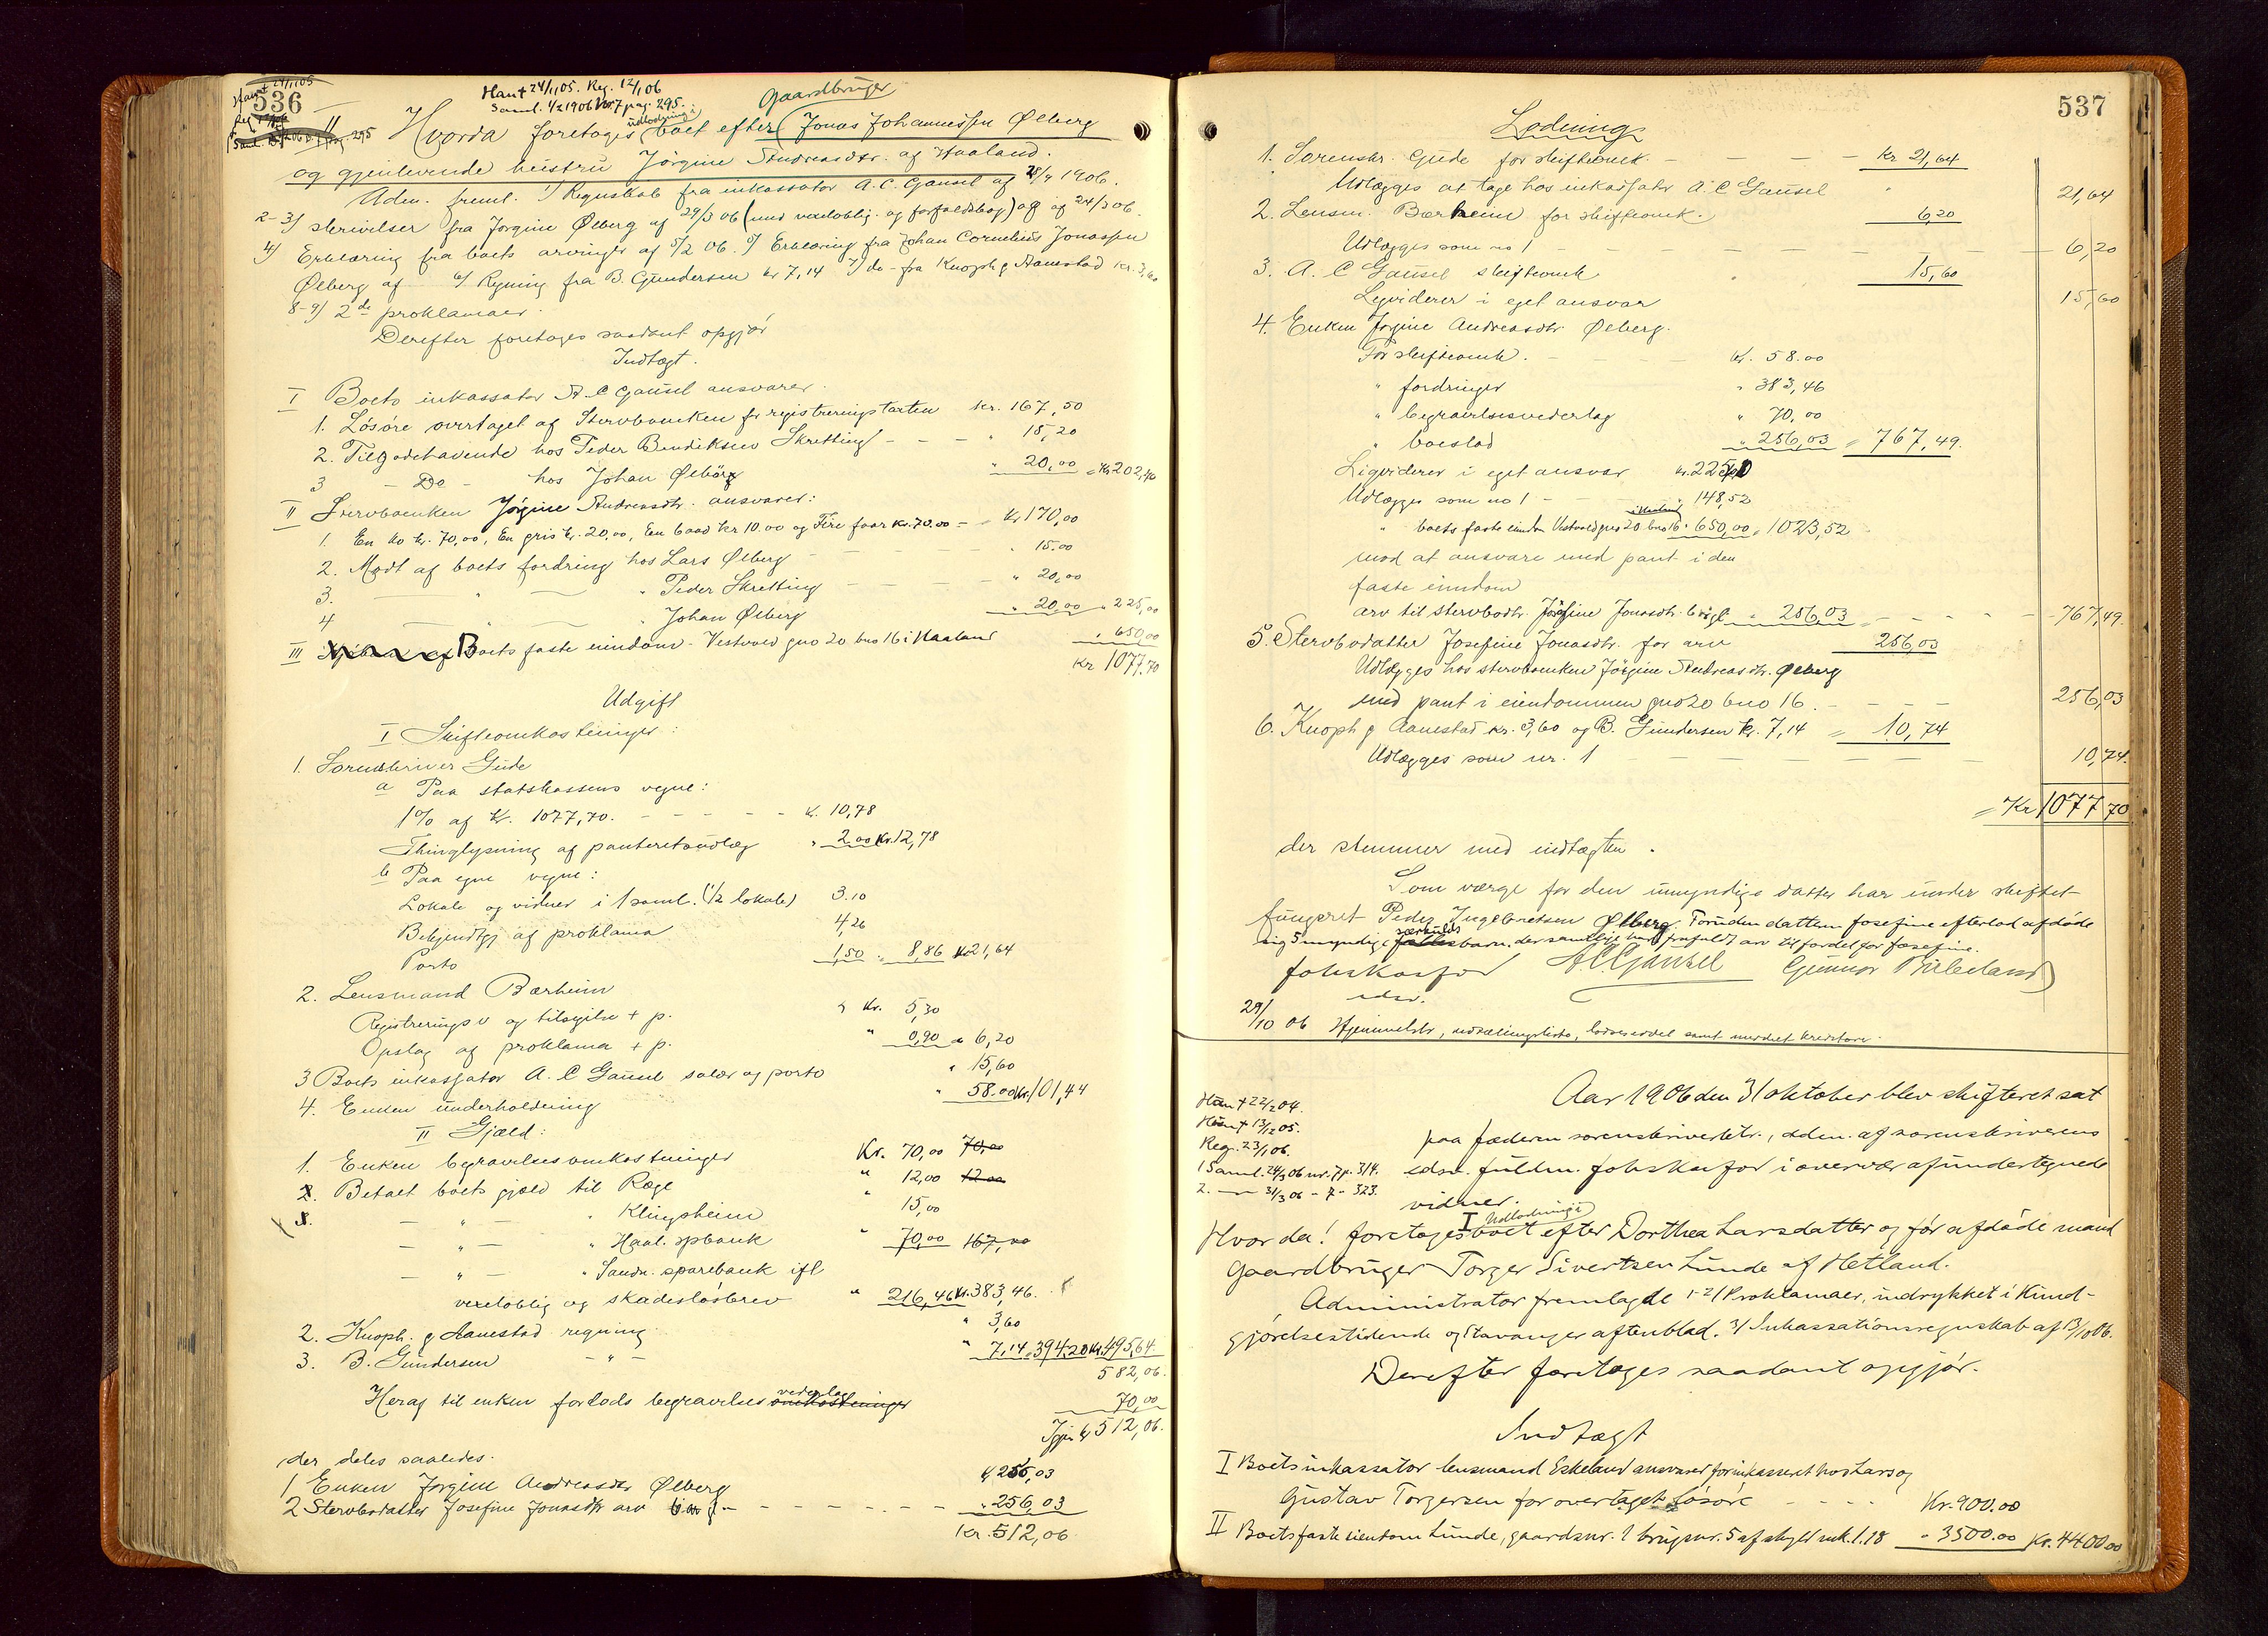 536
Hans + 24/11 05. Reg. 12/1 06
Saml. 1/2 1906 No 7 pag. 295.
II
Gaardbruger
Hvorda foretoges udlodning i boet efter Jonas Johannessen Ølberg
og gjenlevende hustru Jörgine Andreasdtr. af Haaland.
Adm. freml. 1) Regnskab fra inkassator A. C. Gausel af 28/4 1906.
2-3) skrivelser fra Jörgine Ølberg af 29/3 06 (med vexeloblig. og forfaldsbog) og af 24/3 06.
4) Erklæring fra boets arvinger af 5/2 06. 5) Erklæring fra Johan Cornelius Jonassen
Ølberg af — 6) Regning fra B. Gundersen kr 7,14 7) do - fra Knoph & Aanestad kr. 3,60
8-9) 2de proklamaer.
Derefter foretoges saadant opgjør
Indtægt.
I Boets inkassator A. C. Gausel ansvarer.
1. Lösöre overtaget af Stervboenken for registreringstaxten kr. 167,50
2. Tilgodehavende hos Peder Bendiksen Skretting - - - " 15,20
3 - Do - hos Johan Ølberg " 20,00 = Kr 202,70
II Stervboenken Jørgine Andreasdtr. ansvarer:
1. En ko kr. 70,00, En gris kr. 20,00, En baad kr 10.00 og Fire faar kr. 70.00 - = Kr 170,00
2. Modt af boets fordring hos Lars Ølberg - - - " 15.00
3. " " Peder Skretting - - - " 20,00
4 " Johan Ølberg " 20,00 " 225,00
III Boets faste eiendom - Vestvold gno 20 bno 16 i Haaland " 650,00
Kr 1077.70
Udgift
I Skifteomkostninger:
1. Sorenskriver Gude
a Paa statskassens vegne:
1% af kr. 1077,70. - - - - - kr. 10,78
Thinglysning af panteretsudlæg " 2.00 Kr. 12,78
b Paa egne vegne:
Lokale og vidner i 1 saml. (1/2 lokale) 3.10
Bekjendtgj af proklama 4,26
Porto 1,50 = 8,86 Kr 21,64
2. Lensmand Bærheim
Registrerings v og tilsigelse + p. Kr. 5,30
Opslag af proklama + p. " 0,90 " 6,20
3 Boets inkassator A. C Gausel salær og porto " 15,60
4. Enkens underholdning " 58.00 Kr. 101,44
II Gjæld:
1. Enken begravelsesomkostninger Kr. 70,00 70,00
2. Betalt boets gjæld til Ræge " 12,00 12.00
— " — " Klingsheim " 15,00
— " — " Haal. spbank " 70,00 167,00
— " — " Sandn. sparebank ifl
vexeloblig og skadeslösbrev " 216,46 Kr. 383,46.
2. Knoph & Aanestad regning " 3,60
3. B. Gundersen - " - " 7,14 = 394.20 Kr. 495,64
582,06.
Heraf til enken forlods begravelsesvederlag omkostninger 70,00
Igjen kr 512,06.
der deles saaledes.
1 Enken Jörgine Andreasdtr Ølberg kr 256,03
2 Stervbodatter Josefine Jonasdtr arv - - - - " 256,03
Kr. 512,06
537
Lodning
1. Sorenskr. Gude for skifteomk. - - - - Kr 21,64
Udlægges at tage hos inkassator A. C Gausel 21,64
2. Lensm. Bærheim for skifteomk. 6,20
Udlægges som no 1 - - - - 6,20
3. A. C Gausel skifteomk 15,60
Ligviderer i eget ansvar 15,60
4. Enken Jörgine Andreasdtr. Ølberg.
For skifteomk. - - - - kr. 58.00
" fordringer " 383,46
" begravelsesvederlag " 70,00
" boeslod " 256,03 = 767,49.
Ligviderer i eget ansvar kr. 225,00
Udlægges som no 1 - " 148,52
" boets faste eiendm Vestvold gno 20 bno 16 i Haaland " 650,00 = 1023,52
mod at ansvare med pant i den
faste eiendom
arv til stervbodtr. Josefine Jonasdtr. " 256,03 - - - 767,49.
5. Stervbodatter Josefine Jonasdtr. for arv 256,03
Udlægges hos stervboenken Jörgine Andreasdtr. Ølberg
med pant i eiendommen gno 20 bno 16. - - - 256,03
6. Knoph & Aanestad kr. 3,60 og B. Gundersen kr. 7,14 = 10,74
Udlægges som nr. 1 - - - - 10,74.
= Kr 1077 70
der stemmer med indtægten.
Som værge for den umyndige datter har under skiftet
fungeret Peder Ingebretsen Ølberg. Foruden datteren Josefine efterlod afdøde
sig 5 myndige særkuldsbarn, der samtlige har frafaldt arv til fordel for Josefine.
Joh. Kasfor A. C. Gausel Gunnar Bieleland
edsv.
29/10 06 Hjemmelsbr, lodseddel samt meddelt kreditorer.
Aar 1906 den 31 oktober blev skifteret sat
paa Jæderen sorenskriverktr., adm. af sorenskriverens
edsv. fuldm. Joh. Kasfor i overvær af undertegnede
vidner.
Han + 22/2 04.
Hun + 13/12 05.
Reg. 23/1 06.
1 Saml. 24/3 06 nr. 7 p. 314.
2. — 31/3 06 - 7 - 323.
Hvorda! foretoges I Udlodning i boet efter Dorthea Larsdatter og før afdöde mand
Gaardbruger Torger Sivertsen Lunde af Hetland.
Administrator fremlagde 1-2) Proklamaer, indrykket i Kund-
gjörelsestidende og Stavanger aftenblad. 3) Inkassationsregnskab af 13/10 06.
Derefter foretoges saadant opgjör.
Indtægt
I Boets inkassator lensmand Eskeland ansvarer for inkasseret hos Lars og
Gustav Torgersen for overtaget lösöre - - - - Kr. 900.00
II Boets faste eiendom Lunde, gaardsnr. 1 brugsnr. 5 af skyld mk. 1.18 " 3500.00 Kr. 4400 00